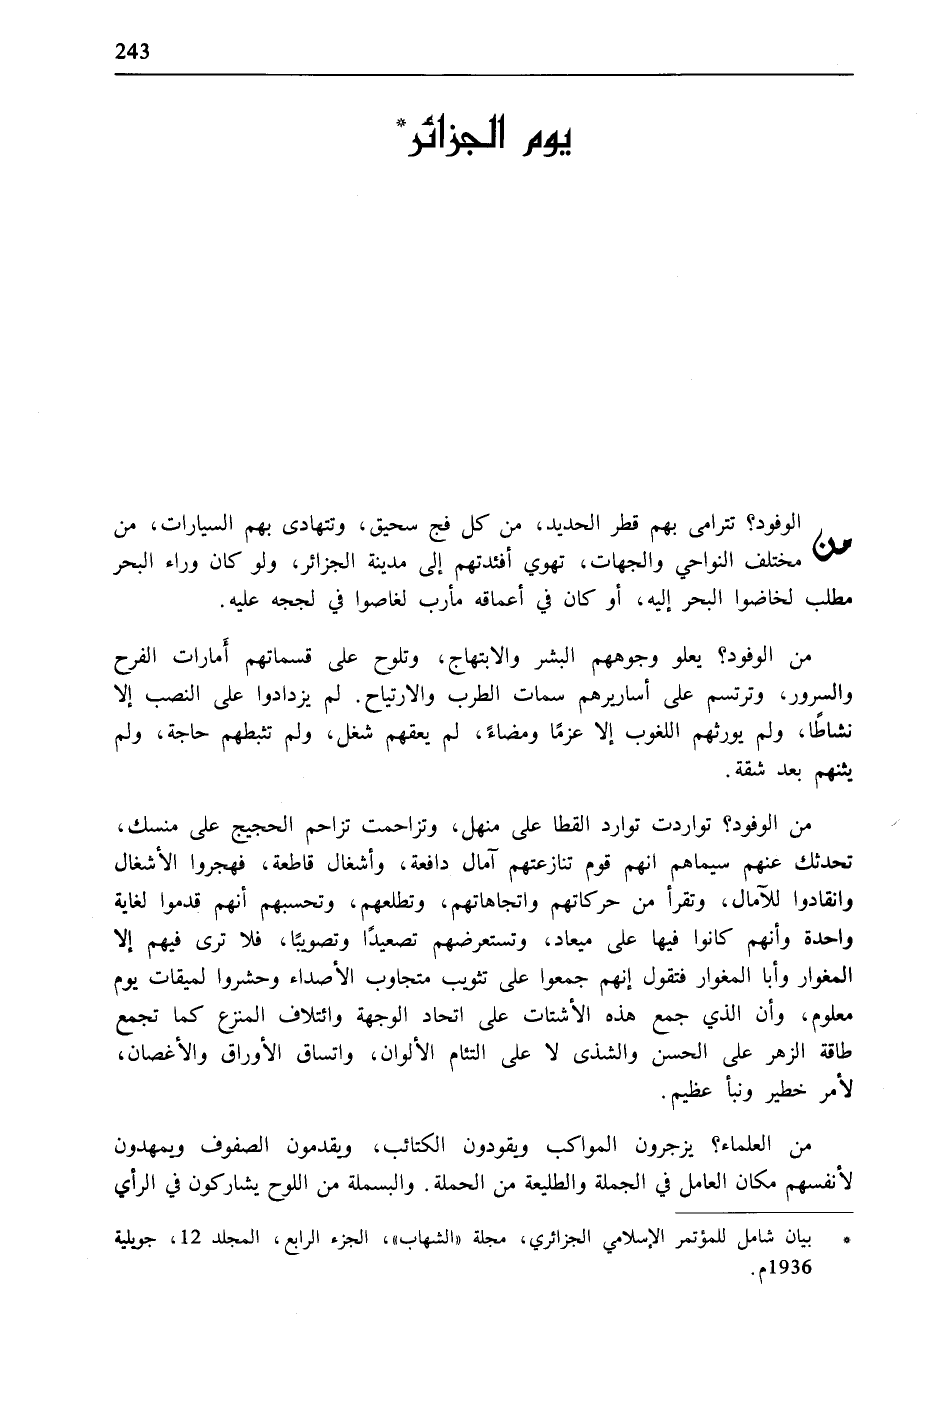 243
يوم الجزائر*
من الوفود؟ تترامى بهم قطر الحديد، من كل فج سحيق، وتتهادى بهم السيارات، من
مختلف النواحي والجهات، تهوي أفئدتهم إلى مدينة الجزائر، ولو كان وراء البحر
مطلب لخاضوا البحر إليه، أو كان في أعماقه مأرب لغاصوا في لججه عليه.
من الوفود؟ يعلو وجوههم البشر والابتهاج، وتلوح على قسماتهم أَمارات الفرح
والسرور، وترتسم على أساريرهم سمات الطرب والارتياح. لم يزدادوا على النصب إلا
نشاطًا، ولم يورثهم اللغوب إلا عزمًا ومضاءً، لم يعقهم شغل، ولم تثبطهم حاجة، ولم
يثنهم بعد شقة.
من الوفود؟ تواردت توارد القطا على منهل، وتزاحمت تزاحم الحجيج على منسك،
تحدثك عنهم سيماهم انهم قوم تنازعتهم آمال دافعة، وأشغال قاطعة، فهجروا الأشغال
وانقادوا للآمال، وتقرأ من حركاتهم واتجاهاتهم، وتطلعهم، وتحسبهم أنهم قدموا لغاية
واحدة وأنهم كانوا فيها على ميعاد، وتستعرضهم تصعيدًا وتصويبًا، فلا ترى فيهم إلا
المغوار وأبا المغوار فتقول إنهم جمعوا على تثويب متجاوب الأصداء وحشروا لميقات يوم
معلوم، وأن الذي جمع هذه الأشتات على اتحاد الوجهة وائتلاف المنزع كما تجمع
طاقة الزهر على الحسن والشذى لا على التئام الألوان، واتساق الأوراق والأغصان،
لأمر خطير ونبأ عظيم.
من العلماء؟ يزجرون المواكب ويقودون الكتائب، ويقدمون الصفوف ويمهدون
لأنفسهم مكان العامل في الجملة والطليعة من الحملة. والبسملة من اللوح يشاركون في الرأي
* بيان شامل للمؤتمر الإسلامي الجزائري، مجلة «الشهاب»، الجزء الرابع، المجلد 12، جويلية
1936م.